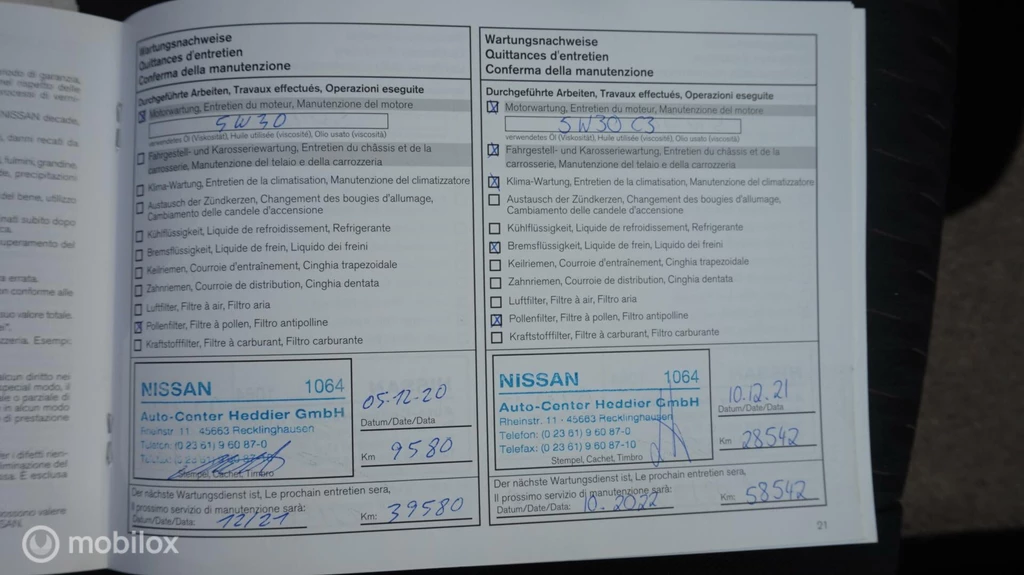 nodo di garanzia,
nel rispetto delle
NISSAN decade,
danni recati da
fulmini, grandine,
precipitazioni
del bene, utilizzo
nati subito dopo
uperamento del
errata.
on conforme alle
suo valore totale.
zzeria. Esempi:
alcun diritto nei
special modo, il
ale o parziale di
in alcun modo
di prestazione
er i difetti rien-
eliminazione del
ssa. È esclusa
ossono valere
SAN.
Wartungsnachweise
Quittances d'entretien
Conferma della manutenzione
Durchgeführte Arbeiten, Travaux effectués, Operazioni eseguite
Motorwartung, Entretien du moteur, Manutenzione del motore
5W30
verwendetes Öl (Viskosität), Huile utilisée (viscosité), Olio usato (viscosità)
Fahrgestell- und Karosseriewartung, Entretien du châssis et de la
carrosserie, Manutenzione del telaio e della carrozzeria
Klima-Wartung, Entretien de la climatisation, Manutenzione del climatizzatore
Austausch der Zündkerzen, Changement des bougies d'allumage,
Cambiamento delle candele d'accensione
Kühlflüssigkeit, Liquide de refroidissement, Refrigerante
Bremsflüssigkeit, Liquide de frein, Liquido dei freini
Keilriemen, Courroie d'entraînement, Cinghia trapezoidale
Zahnriemen, Courroie de distribution, Cinghia dentata
Luftfilter, Filtre à air, Filtro aria
Pollenfilter, Filtre à pollen, Filtro antipolline
Kraftstofffilter, Filtre à carburant, Filtro carburante
NISSAN 1064
Auto-Center Heddier GmbH
Rheinstr. 11 - 45663 Recklinghausen
Telefon: (0 23 61) 9 60 87-0
Stempel, Cachet, Timbro
05.12.20
Datum/Date/Data
Km 9580
Der nächste Wartungsdienst ist, Le prochain entretien sera,
Il prossimo servizio di manutenzione sarà:
Datum/Date/Data: 12/21 Km: 39580
Wartungsnachweise
Quittances d'entretien
Conferma della manutenzione
Durchgeführte Arbeiten, Travaux effectués, Operazioni eseguite
Motorwartung, Entretien du moteur, Manutenzione del motore
5W30 C3
verwendetes Öl (Viskosität), Huile utilisée (viscosité), Olio usato (viscosità)
Fahrgestell- und Karosseriewartung, Entretien du châssis et de la
carrosserie, Manutenzione del telaio e della carrozzeria
Klima-Wartung, Entretien de la climatisation, Manutenzione del climatizzatore
Austausch der Zündkerzen, Changement des bougies d'allumage,
Cambiamento delle candele d'accensione
Kühlflüssigkeit, Liquide de refroidissement, Refrigerante
Bremsflüssigkeit, Liquide de frein, Liquido dei freini
Keilriemen, Courroie d'entraînement, Cinghia trapezoidale
Zahnriemen, Courroie de distribution, Cinghia dentata
Luftfilter, Filtre à air, Filtro aria
Pollenfilter, Filtre à pollen, Filtro antipolline
Kraftstofffilter, Filtre à carburant, Filtro carburante
NISSAN 1064
Auto-Center Heddier GmbH
Rheinstr. 11 - 45663 Recklinghausen
Telefon: (0 23 61) 9 60 87-0
Telefax: (0 23 61) 9 60 87-10
Stempel, Cachet, Timbro
10.12.21
Datum/Date/Data
Km 28542
Der nächste Wartungsdienst ist, Le prochain entretien sera,
Il prossimo servizio di manutenzione sarà:
Datum/Date/Data: 10.2022 Km: 58542
21
mobilox